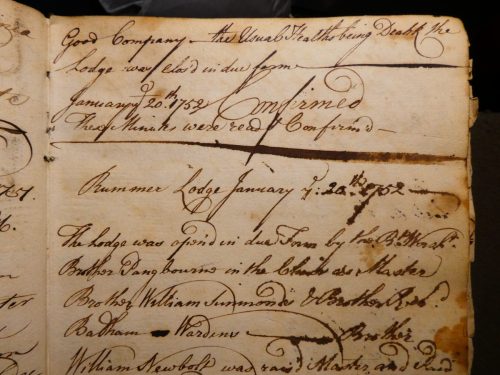 Good Company — the Usual Healths being Deank the
Lodge was Clos'd in due form
January ye 20.th 1752 Confirmed
These Minutes were read & Confirm'd —
Rummer Lodge January ye 20th 1752
The Lodge was open'd in due Form by the Rt Worsh.l
Brother Pangbourne in the Chair as Master
Brother William Simmonds & Brother Rich.d
Badham — Wardens — Brother
William Newbolt was rais'd Master, and Paid
1751.